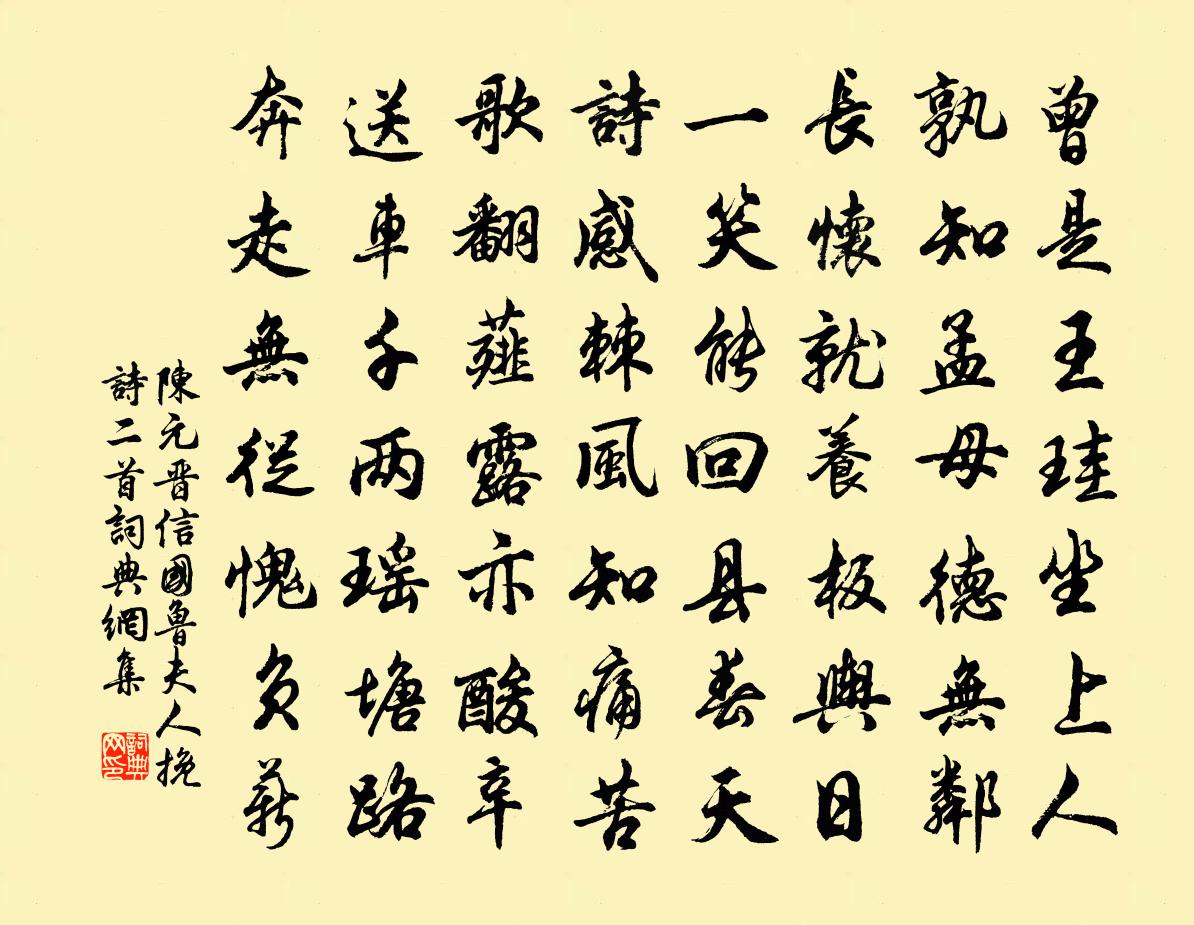 曾是王珪坐上人
孰知孟母德無鄰
長懷就養板輿日
一笑能回县春天
詩感棘風知痛苦
歌翻薤露亦酸辛
送車千两瑶塘路
奔走無從愧负薪
陳元晋信國魯夫人挽
詩二首詞典網集
詞典
网印